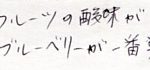 フルーツの酸味が
ブルーベリーが一番